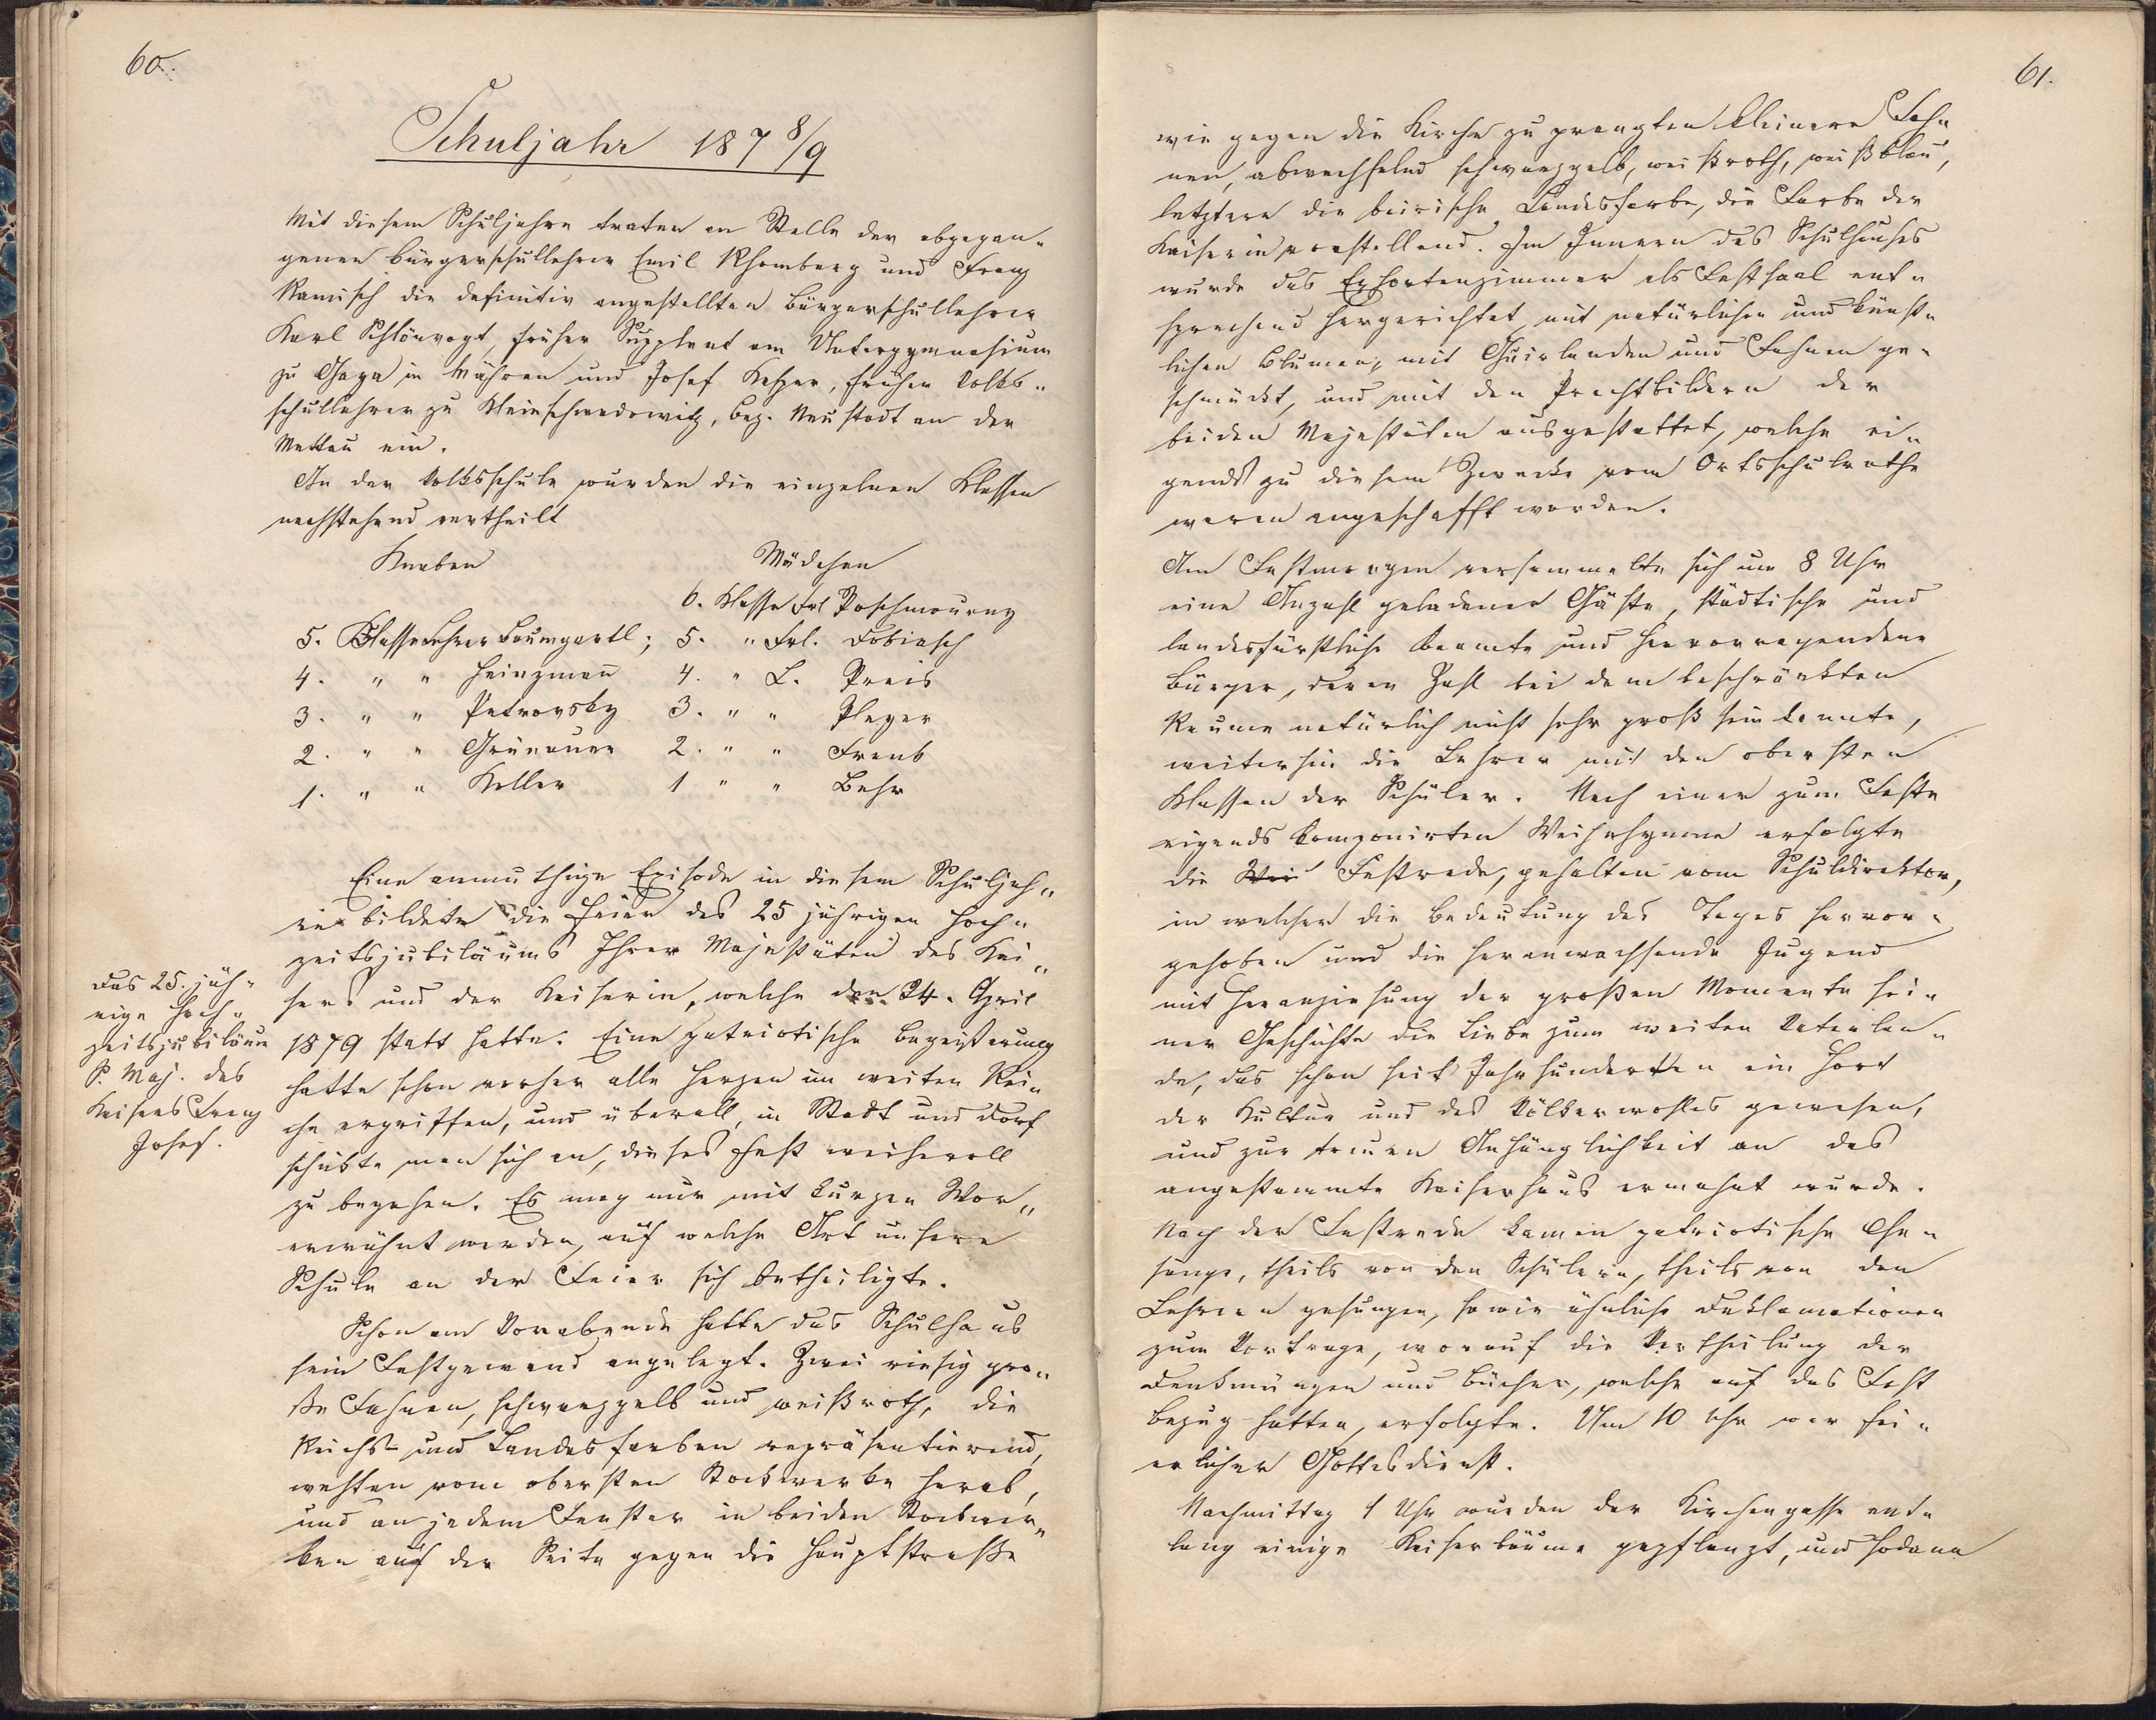 60.
Schuljahr 187 8/9
Mit diesem Schuljahre traten an Stelle der abgegan„
genen Bürgerschullehrer Emil Rhomberg und Franz
Ramisch die definitiv angestellten Bürgerschullehrer
Karl Schlönvogt, früher Supplent am Untergymnasium
zu Gaya in Mähren und Josef Kahzer, früher Volks„
schullehrer zu Kleinschwadowitz, Bez. Neustadt an der
Mettau ein.
In der Volksschule wurden die einzelnen Klassen
nachstehend vertheilt
Knaben Mädchen
6. Klasse Frl Poschmourny
5. Klasse Lehrer Baumgartl; 5. „ Frl. Dobiasch
4. „ „ Heinzman 4. „ L. Preis
3. „ „ Petrovsky 3. „ „ Pleyer
2. „ „ Grünauer 2. „ „ Frenb
1. „ „ Keller 1 „ „ Behr
Eine anmuthige Episode in diesem Schuljah„
re bildete die Feier des 25 jährigen Hoch„
zeitsjubiläums Ihrer Majestäten des Kai„
sers und der Kaiserin, welche den 24. April
1879 statt hatte. Eine patriotische Begeisterung
hatte schon vorher alle Herzen im weiten Rei„
che ergriffen, und überall, in Stadt und Dorf
schickte man sich an, dieses Fest weihevoll
zu begehen. Es mag nur mit kurzen Wor„
erwähnt werden, auf welche Art unsere
Schule an der Feier sich betheiligte.
Schon am Vorabende hatte das Schulhaus
sein Festgewand angelegt. Zwei riesig gro„
ße Fahnen, schwarzgelb und weißroth, die
Reichs- und Landesfarben repräsentierend,
wehten vom obersten Stockwerke herab,
und an jedem Fenster in beiden Stockwer„
ken auf der Seite gegen die Hauptstraße
Das 25. jäh„
rige Hoch„
zeitsjubiläum
S. Maj. des
Kaisers Franz
Josef.
61.
wie gegen die Kirche zu prangten kleinere Fah„
nen, abwechselnd schwarzgelb, weißroth, weißblau,
letztere die bairische Landesfarbe, die Farbe der
Kaiserin vorstellend. Im Innern des Schulhauses
wurde das Exhortenzimmer als Festsaal ent„
sprechend hergerichtet mit natürlichen und künst„
lichen Blumen, mit Guirlanden und Fahnen ge„
schmückt, und mit den Prachtbildern der
beiden Majestäten ausgestattet, welche ei„
gends zu diesem Zwecke vom Ortsschulrathe
waren angeschafft worden.
Am Festmorgen versammelte sich um 8 Uhr
eine Anzahl geladener Gäste, städtische und
landesfürstliche Beamte und hervorragendere
Bürger, deren Zahl bei dem beschränkten
Raume natürlich nicht sehr groß sein konnte,
weiterhin die Lehrer mit den obersten
Klassen der Schüler. Nach einer zum Feste
eigends komponirten Weihehymne erfolgte
die Wei Festrede, gehalten vom Schuldirektor,
in welcher die Bedeutung des Tages hervor„
gehoben und die heranwachsende Jugend
mit Heranziehung der großen Momente sei„
ner Geschichte die Liebe zum weiten Vaterlan„
de, das schon seit Jahrhunderten ein Hort
der Kultur und des Völkerwohles gewesen,
und zur treuen Anhänglichkeit an das
angestammte Kaiserhaus ermahnt wurde.
Nach der Festrede kamen patriotische Ge„
sänge, theils von den Schülern, theils von den
Lehrern gesungen, sowie ähnliche Deklamationen
zum Vortrage, worauf die Vertheilung der
Denkmünzen und Bücher, welche auf das Fest
Bezug hatten, erfolgte. Um 10 Uhr war fei„
erlicher Gottesdienst.
Nachmittag 1 Uhr wurden der Kirchengasse ent„
lang einige Kaiserbäume gepflanzt, und sodann